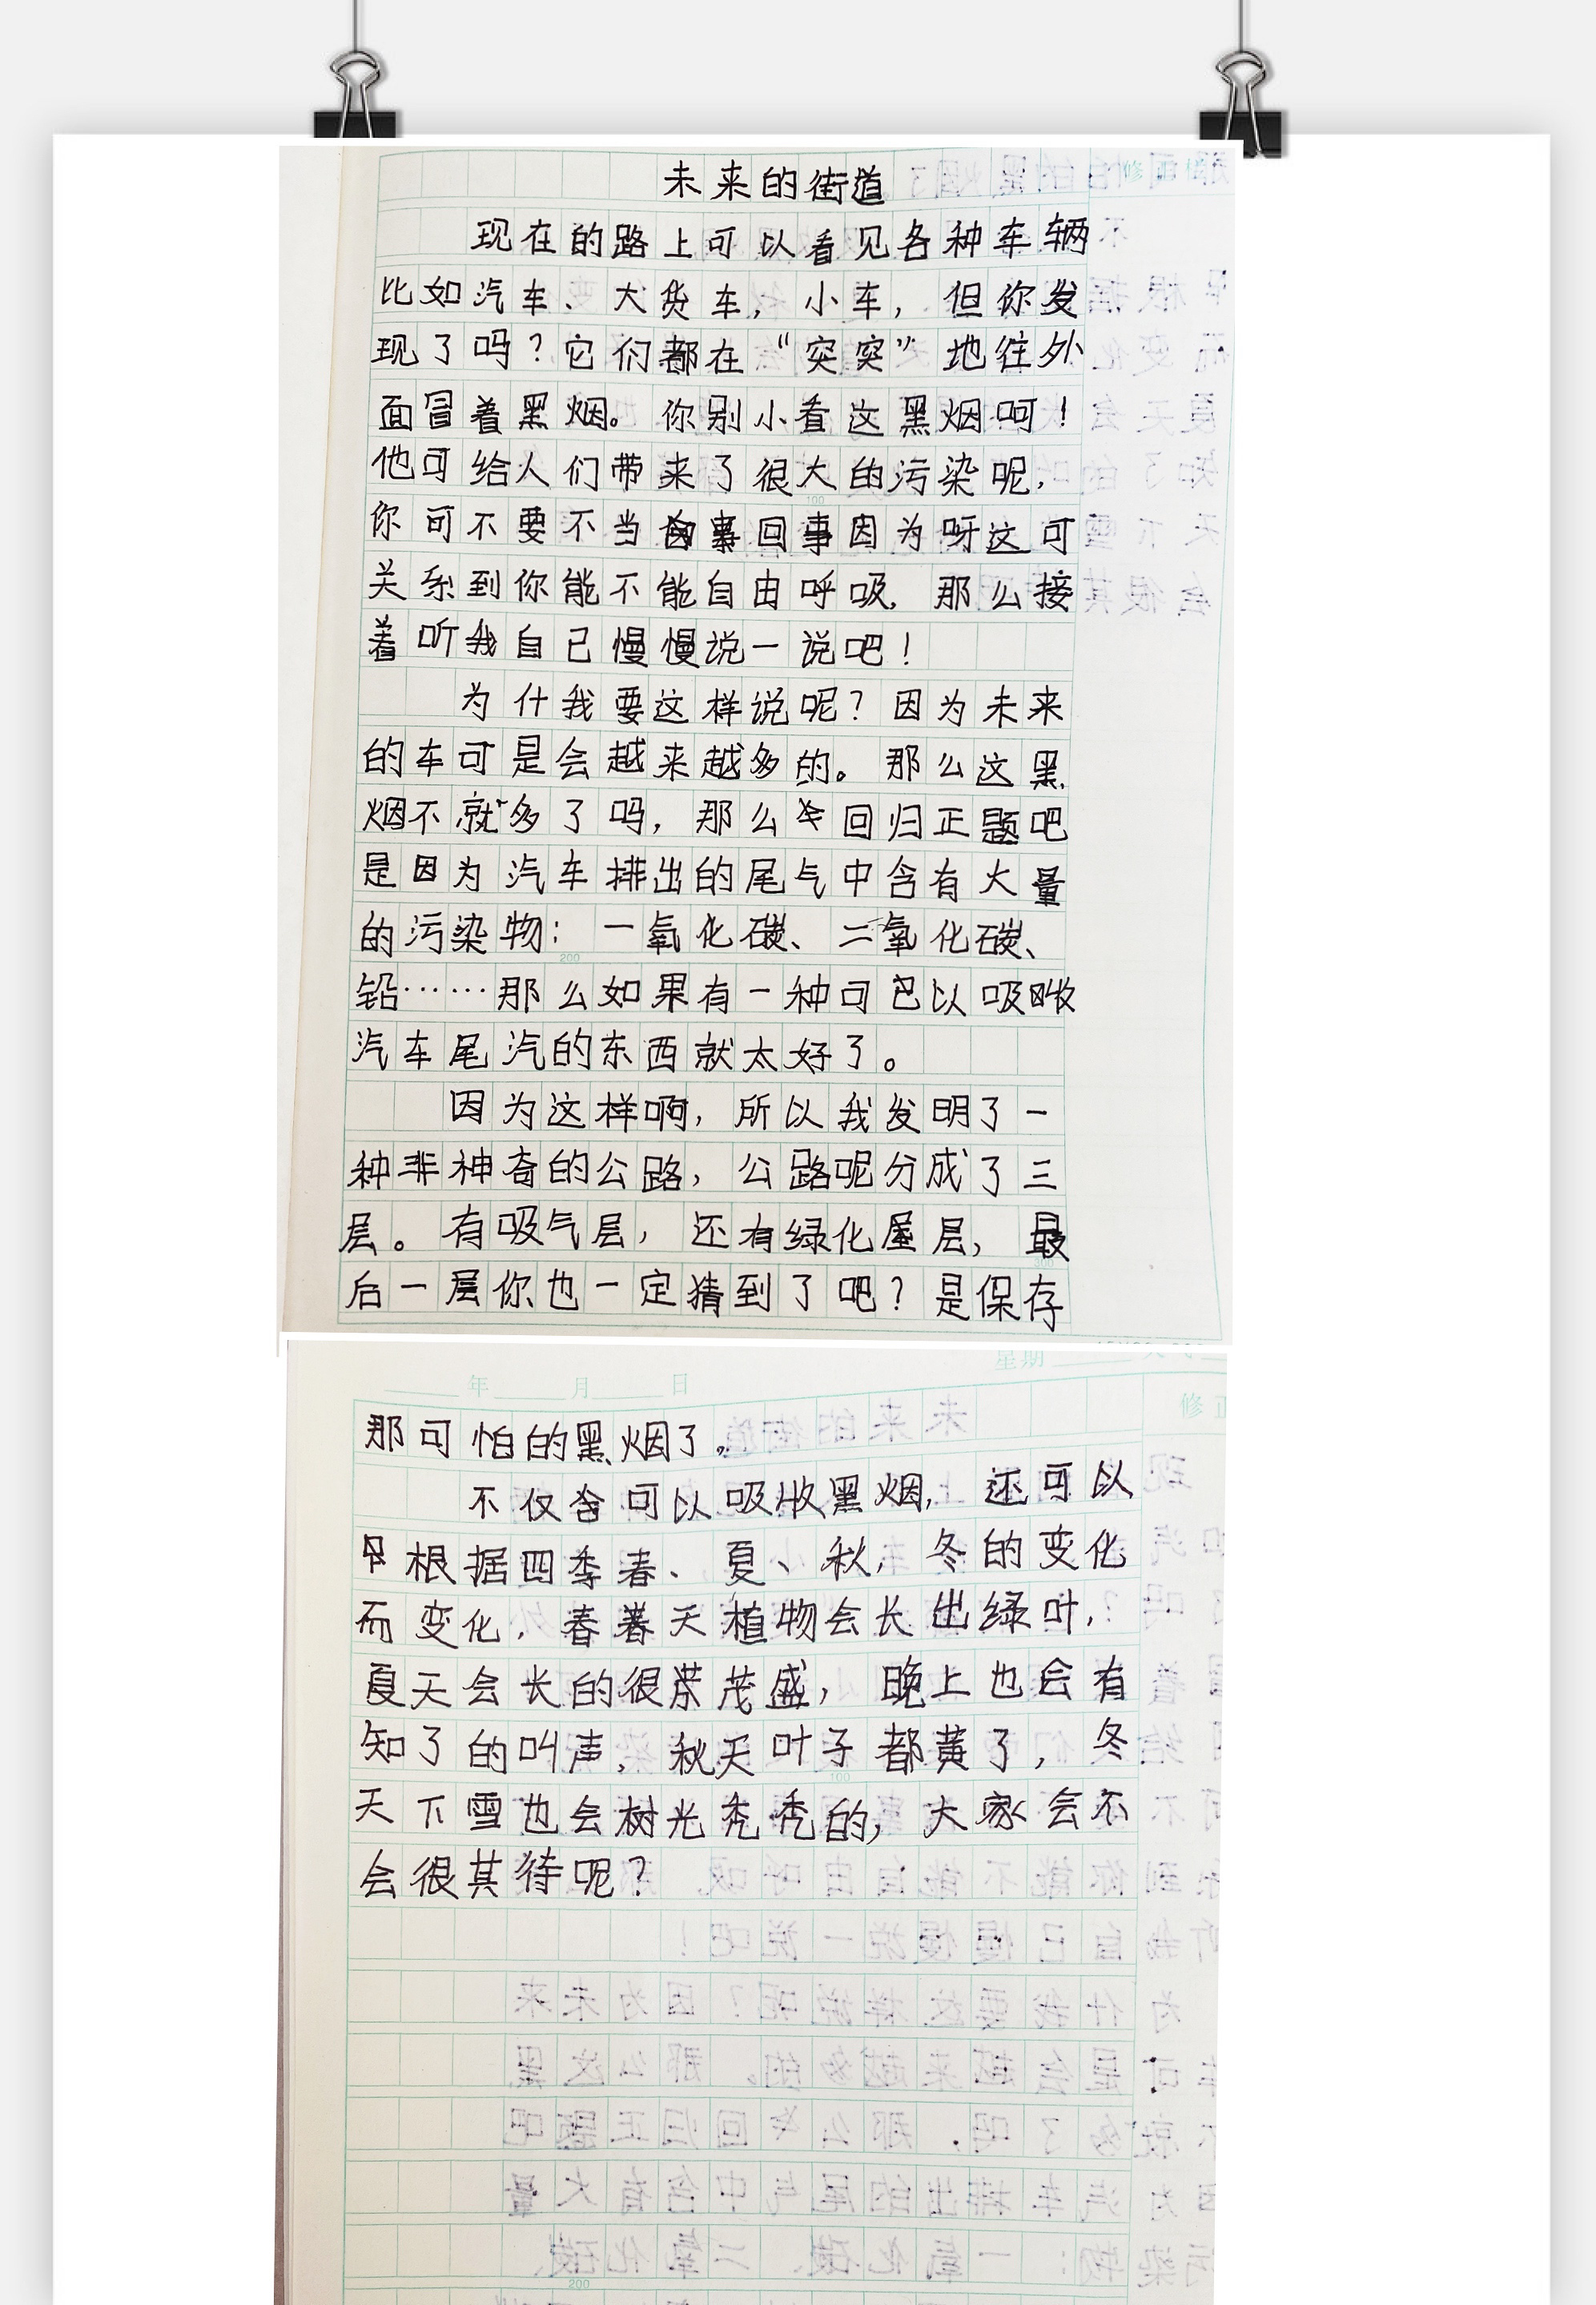 未来的街道
现在的路上可以看见各种车辆
比如汽车、大货车，小车，但你发
现了吗？它们都在“突突”地往外
面冒着黑烟。你别小看这黑烟呵！
他可给人们带来了很大的污染呢，
你可不要不当回事因为呀这可
关系到你能不能自由呼吸，那么接
着听我自己慢慢说一说吧！
为什我要这样说呢？因为未来
的车可是会越来越多的。那么这黑
烟不就多了吗，那么今回归正题吧
是因为汽车排出的尾气中含有大量
的污染物：一氧化碳、二氧化碳、
铅……那么如果有一种可以吸收
汽车尾汽的东西就太好了。
因为这样啊，所以我发明了一
种非神奇的公路，公路呢分成了三
层。有吸气层，还有绿化层，最
后一层你也一定猜到了吧？是保存
年 月 日
星期
修正
那可怕的黑烟了。
不仅可以吸收黑烟，还可以
根据四季春、夏、秋，冬的变化
而变化，春天植物会长出绿叶，
夏天会长的很茂盛，晚上也会有
知了的叫声，秋天叶子都黄了，冬
天下雪也会树光秃秃的，大家会不
会很其待呢？